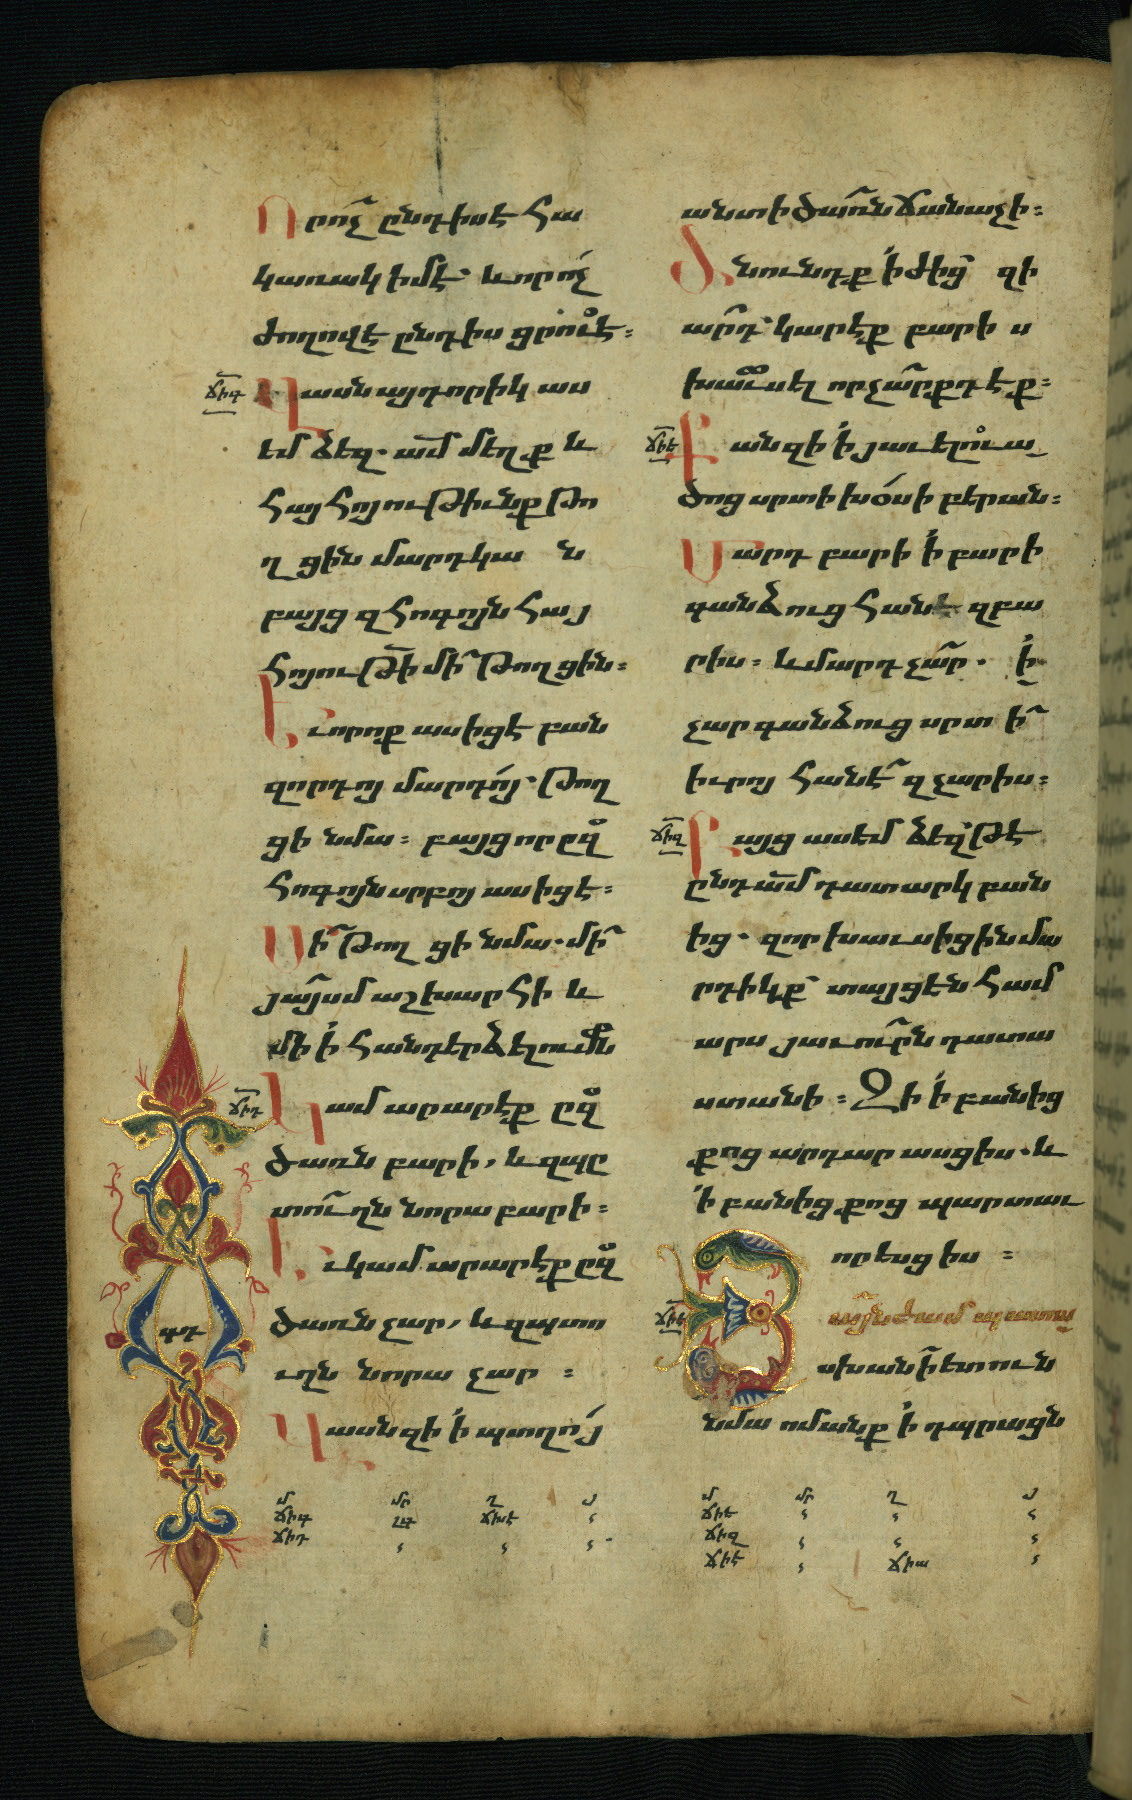 Որոչ̃ ընդիսէ հա
կառակ իմէ· և որոչ
ժողովէ ընդիս ցրուէ։
ճիգ Վասն այդորիկ աս
եմ ձեզ· ամ̃ մեղք և
հայհոյութիւնք թո
ղցին մարդկան
բայց զհոգոյն հայ
հոյութի̃ մի՛ թողցին։
Եւ որոք ասիցէ բան
զորդոյ մարդոյ· թող
ցի նմա։ բայց որ ըզ
հոգոյն սրբոյ ասիցէ։
Մի՛ թողցի նմա· մի՛
յայսմ աշխարհի և
մի ՛ի հանդերձելումն
ճիդ Կամ արարէք ըզ
ծառն բարի, և զպը
տուղն նորա բարի։
Եւ կամ արարէք ըզ
ծառն չար, և զպտո
ւղն նորա չար ։
գդ
Վասն զի ՛ի պտղոյ
անտի ծառն ճանաչի։
Ծնունդք ՛ի ժից զի
արդ կարէք բարի
խաւսել որ չարքդ էք։
ճիե Քանզի ՛ի յաւելուա
ծոց սրտի խօսի բերան։
Մարդ բարի ՛ի բարի
գանձուց հանէ զբա
րիս։ և մարդ չար· ՛ի
չար գանձուց սրտի
իւրոյ հանէ զչարիս։
ճիզ Բայց ասեմ ձեզ թէ
ընդամ̃ դատարկ բան
ից· զոր խաւսիցին մա
րդիկք տայցեն համ
արս յաւուրն դատա
ստանի։ Զի ՛ի բանից
քոց արդար ասցիս· և
՛ի բանից քոց պարտաւ
որեսցիս ։
ճիէ Յայնժամ պատա
սխանի ետուն
նմա ոմանք ՛ի դպրացն
մ մր ղ յ
ճիգ ճիդ
մ մր ղ յ
ճիե
ճիզ
ճիէ ճիա